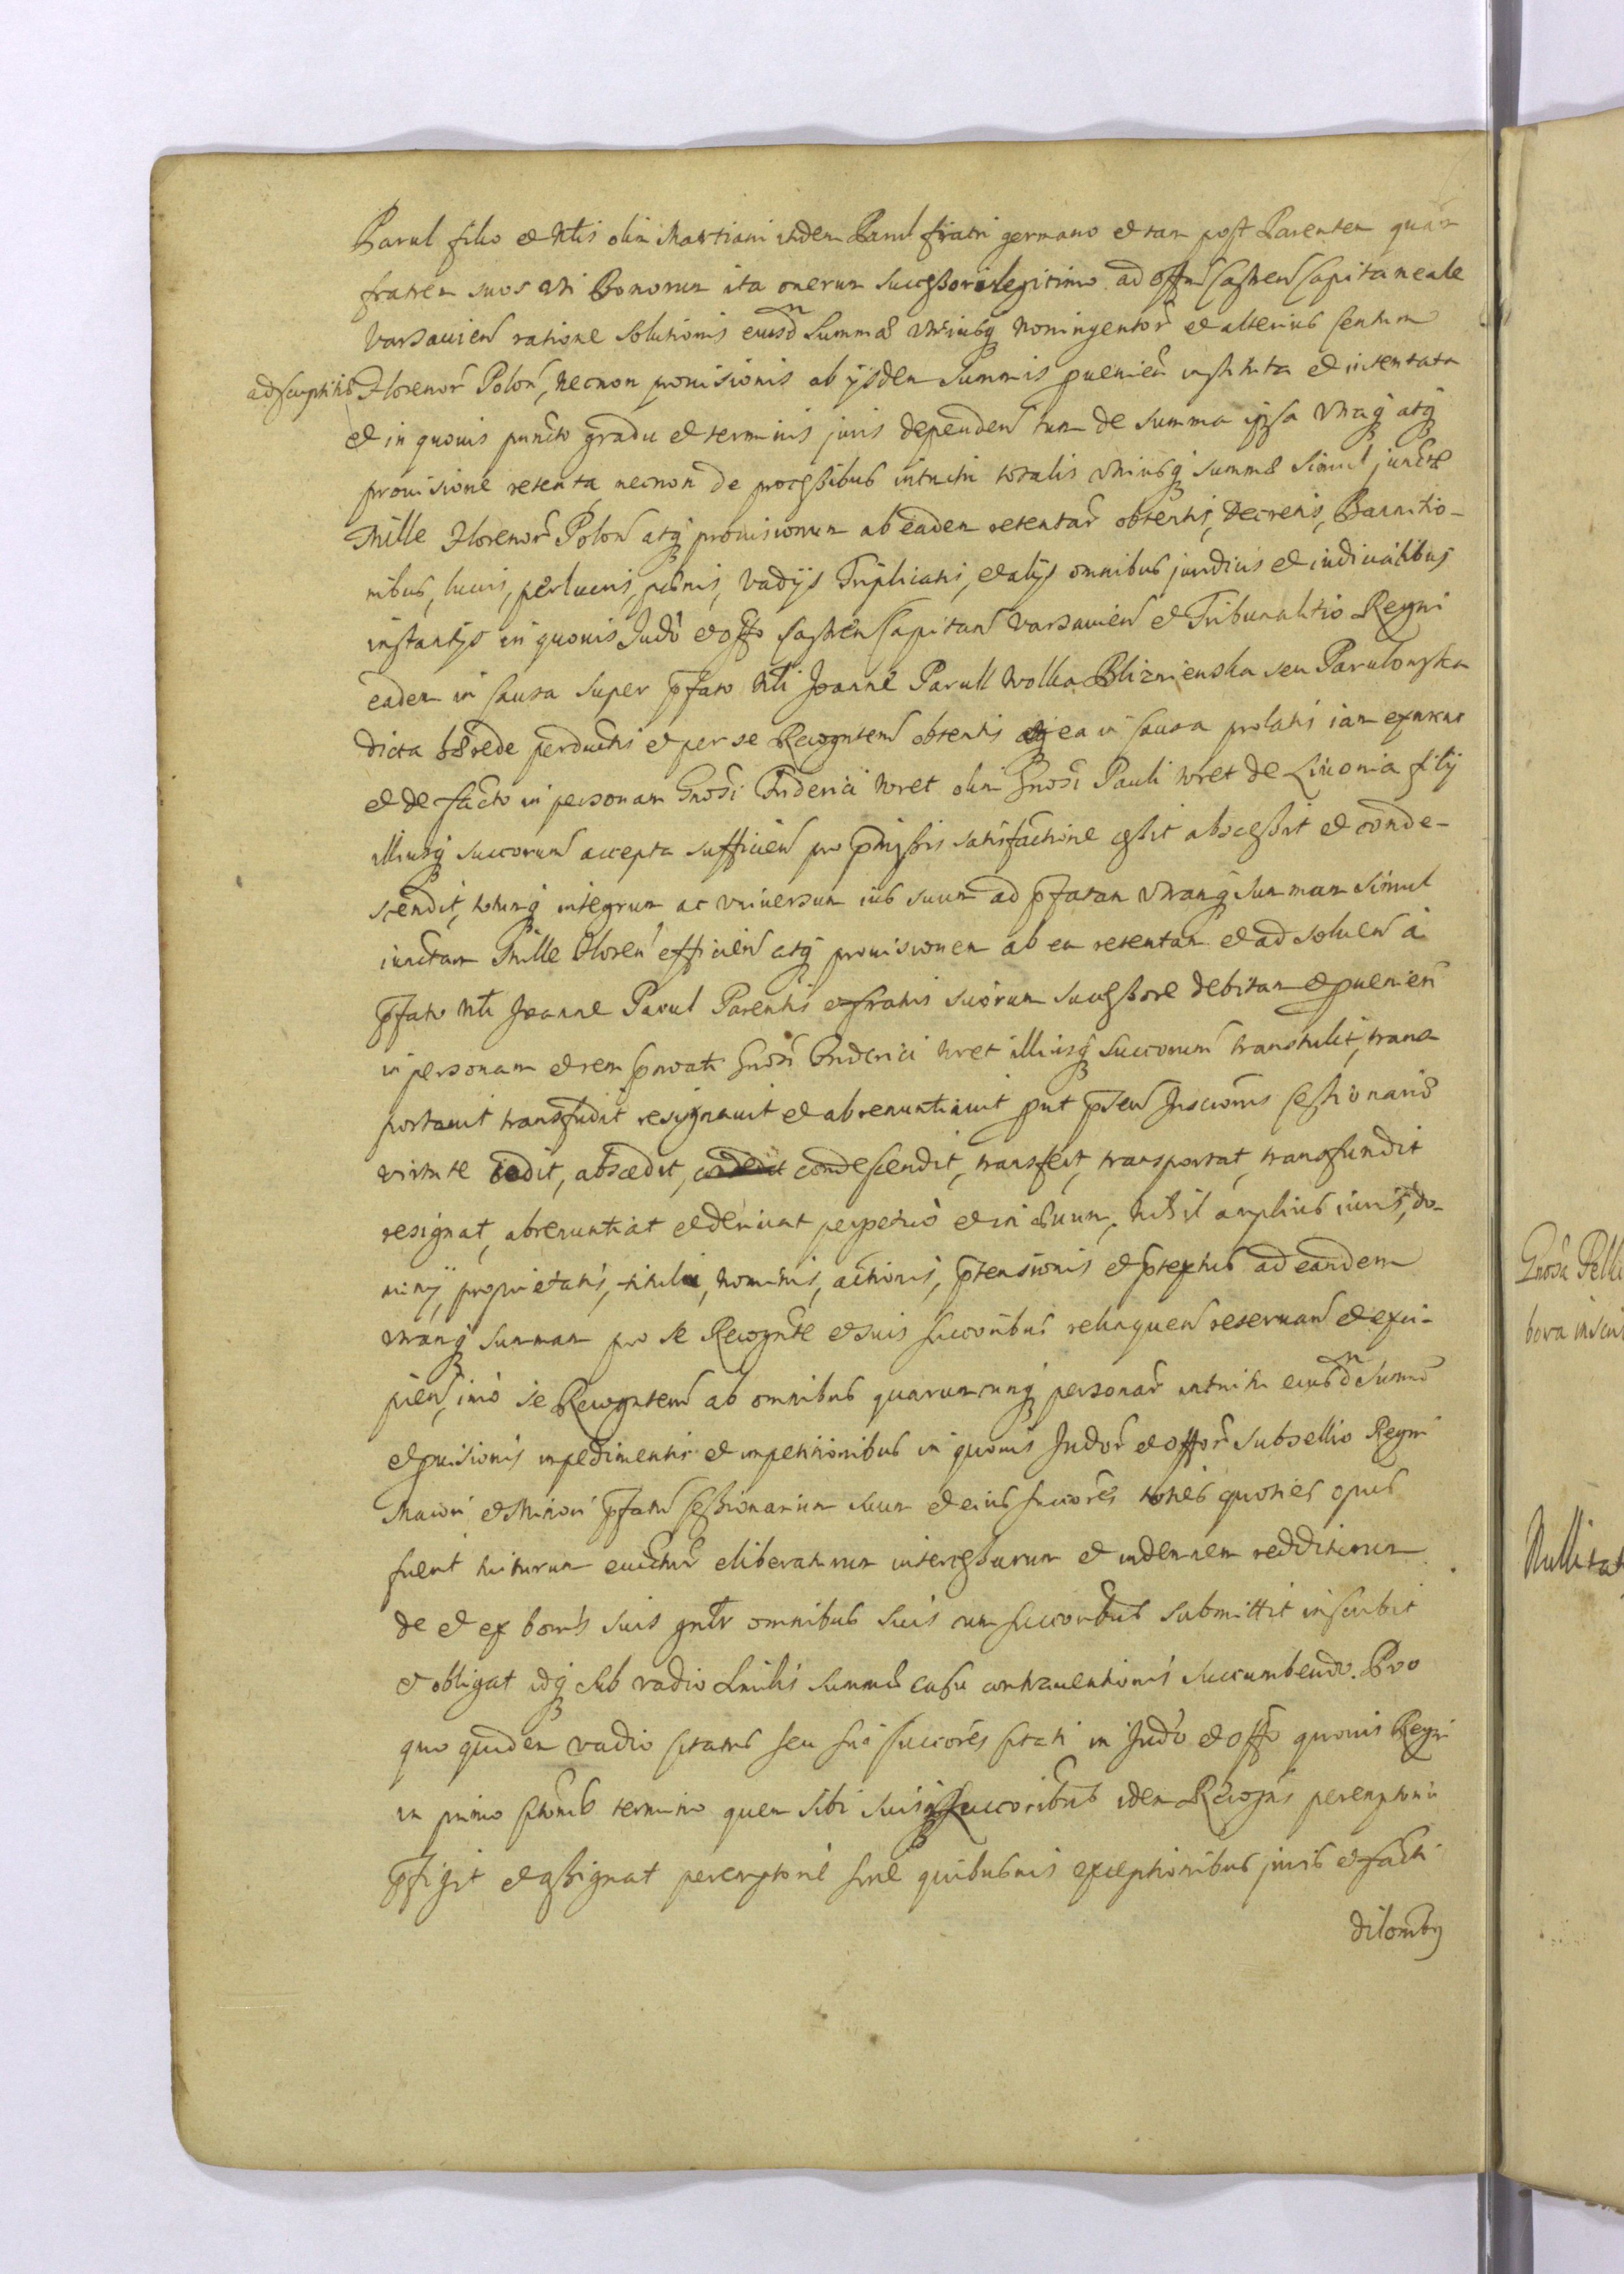 Parul filio et Nlis olim Martiani itidem Parul fratri germano et tam post Parentem quam
fratrem suos uti Bonorum ita onerum successori legitimo ad offm Castren Capitaneale
Varsavien ratione solutionis eiusdn Summæ utriusq noningentor et alterius Centum
adscriptitis Florenor Polon, necnon provisionis ab ijsdem Summis pvenien instituta et intentata
et in quovis puncto gradu et terminis juris dependen tum de summa ipsa utraq atq
provisione retenta necnon de processibus intuitu totalis utriusq summæ simul junctæ
Mille Florenor Polon atq provisionum ab eadem retentar obtentis, Decretis, Bannitio-
nibus, lucris, perlucris, pœnis, Vadijs Triplicatis, et alijs omnibus juridicis et iudicialibus
instantijs in quovis Judo et offo Castren Capitan Varsavien et Tribunalitio Regni
eadem in causa super pfato Nli Joanne Parull Wolka Blizniewska seu Parulowska
dicta hærede perductis et per se Recognten obtentis atq ea in causa prolatis iam exnunc
et de facto in personam Gnosi Friderici Wret olim Gnosi Pauli Wret de Livonia filij
illiusq succorum accepta sufficien pro pmissis satisfactione cessit abscessit et conde-
scendit, totumq integrum ac universum ius suum ad pfatam utramq summam simul
iunctam Mille Floren efficien atq provisionem ab ea retentam et ad solven à
pfato Nli Joanne Parul Parentis et fratris suorum successore debitam et pvenien
in personam et rem pnoati Gnosi Friderici Wret illiusq succorum transtulit, trans
portavit transfudit resignavit et abrenuntiavit put pnten Inscrionis cessionariæ
virtute cedit, abscedit, condescendit, transfert, transportat, transfundit
resignat, abrenuntiat et derivat perpetuò et in ævum, nihil amplius iuris, do-
minij, proprietatis, tituli, nominis, actionis, ptensionis et ptextus ad eandem
utramq summam pro se Recognte et suis succoribus relinquen reservan et exci-
pien, imò se Recognten ab omnibus quarumcunq personar intuitu eiusdn Summæ
et pvisionis impedimentis et impetitionibus in quovis Judor et offor subsellio Regni
Maiori et Minori pfatu Cessionarium suum et eius succores toties quoties opus
fuerit tuiturum evictur eliberaturum intercessurum et indemnem redditurum
de et ex bonis suis gnlr omnibus suis cum succoribus submittit inscribit
et obligat idq sub vadio similis summæ casu contraventionis succumbendo. Pro
quo quidem vadio citatus seu sui succores citati in Judo et offo quovis Regni
in primo citonis termino quem sibi suisq succoribus idem Recogns peremptoriè
pfigit et assignat peremptoriè sine quibusvis exceptionibus juris et facti
dilonibq
Gnosa Pelle
bora inscri
Nullitat